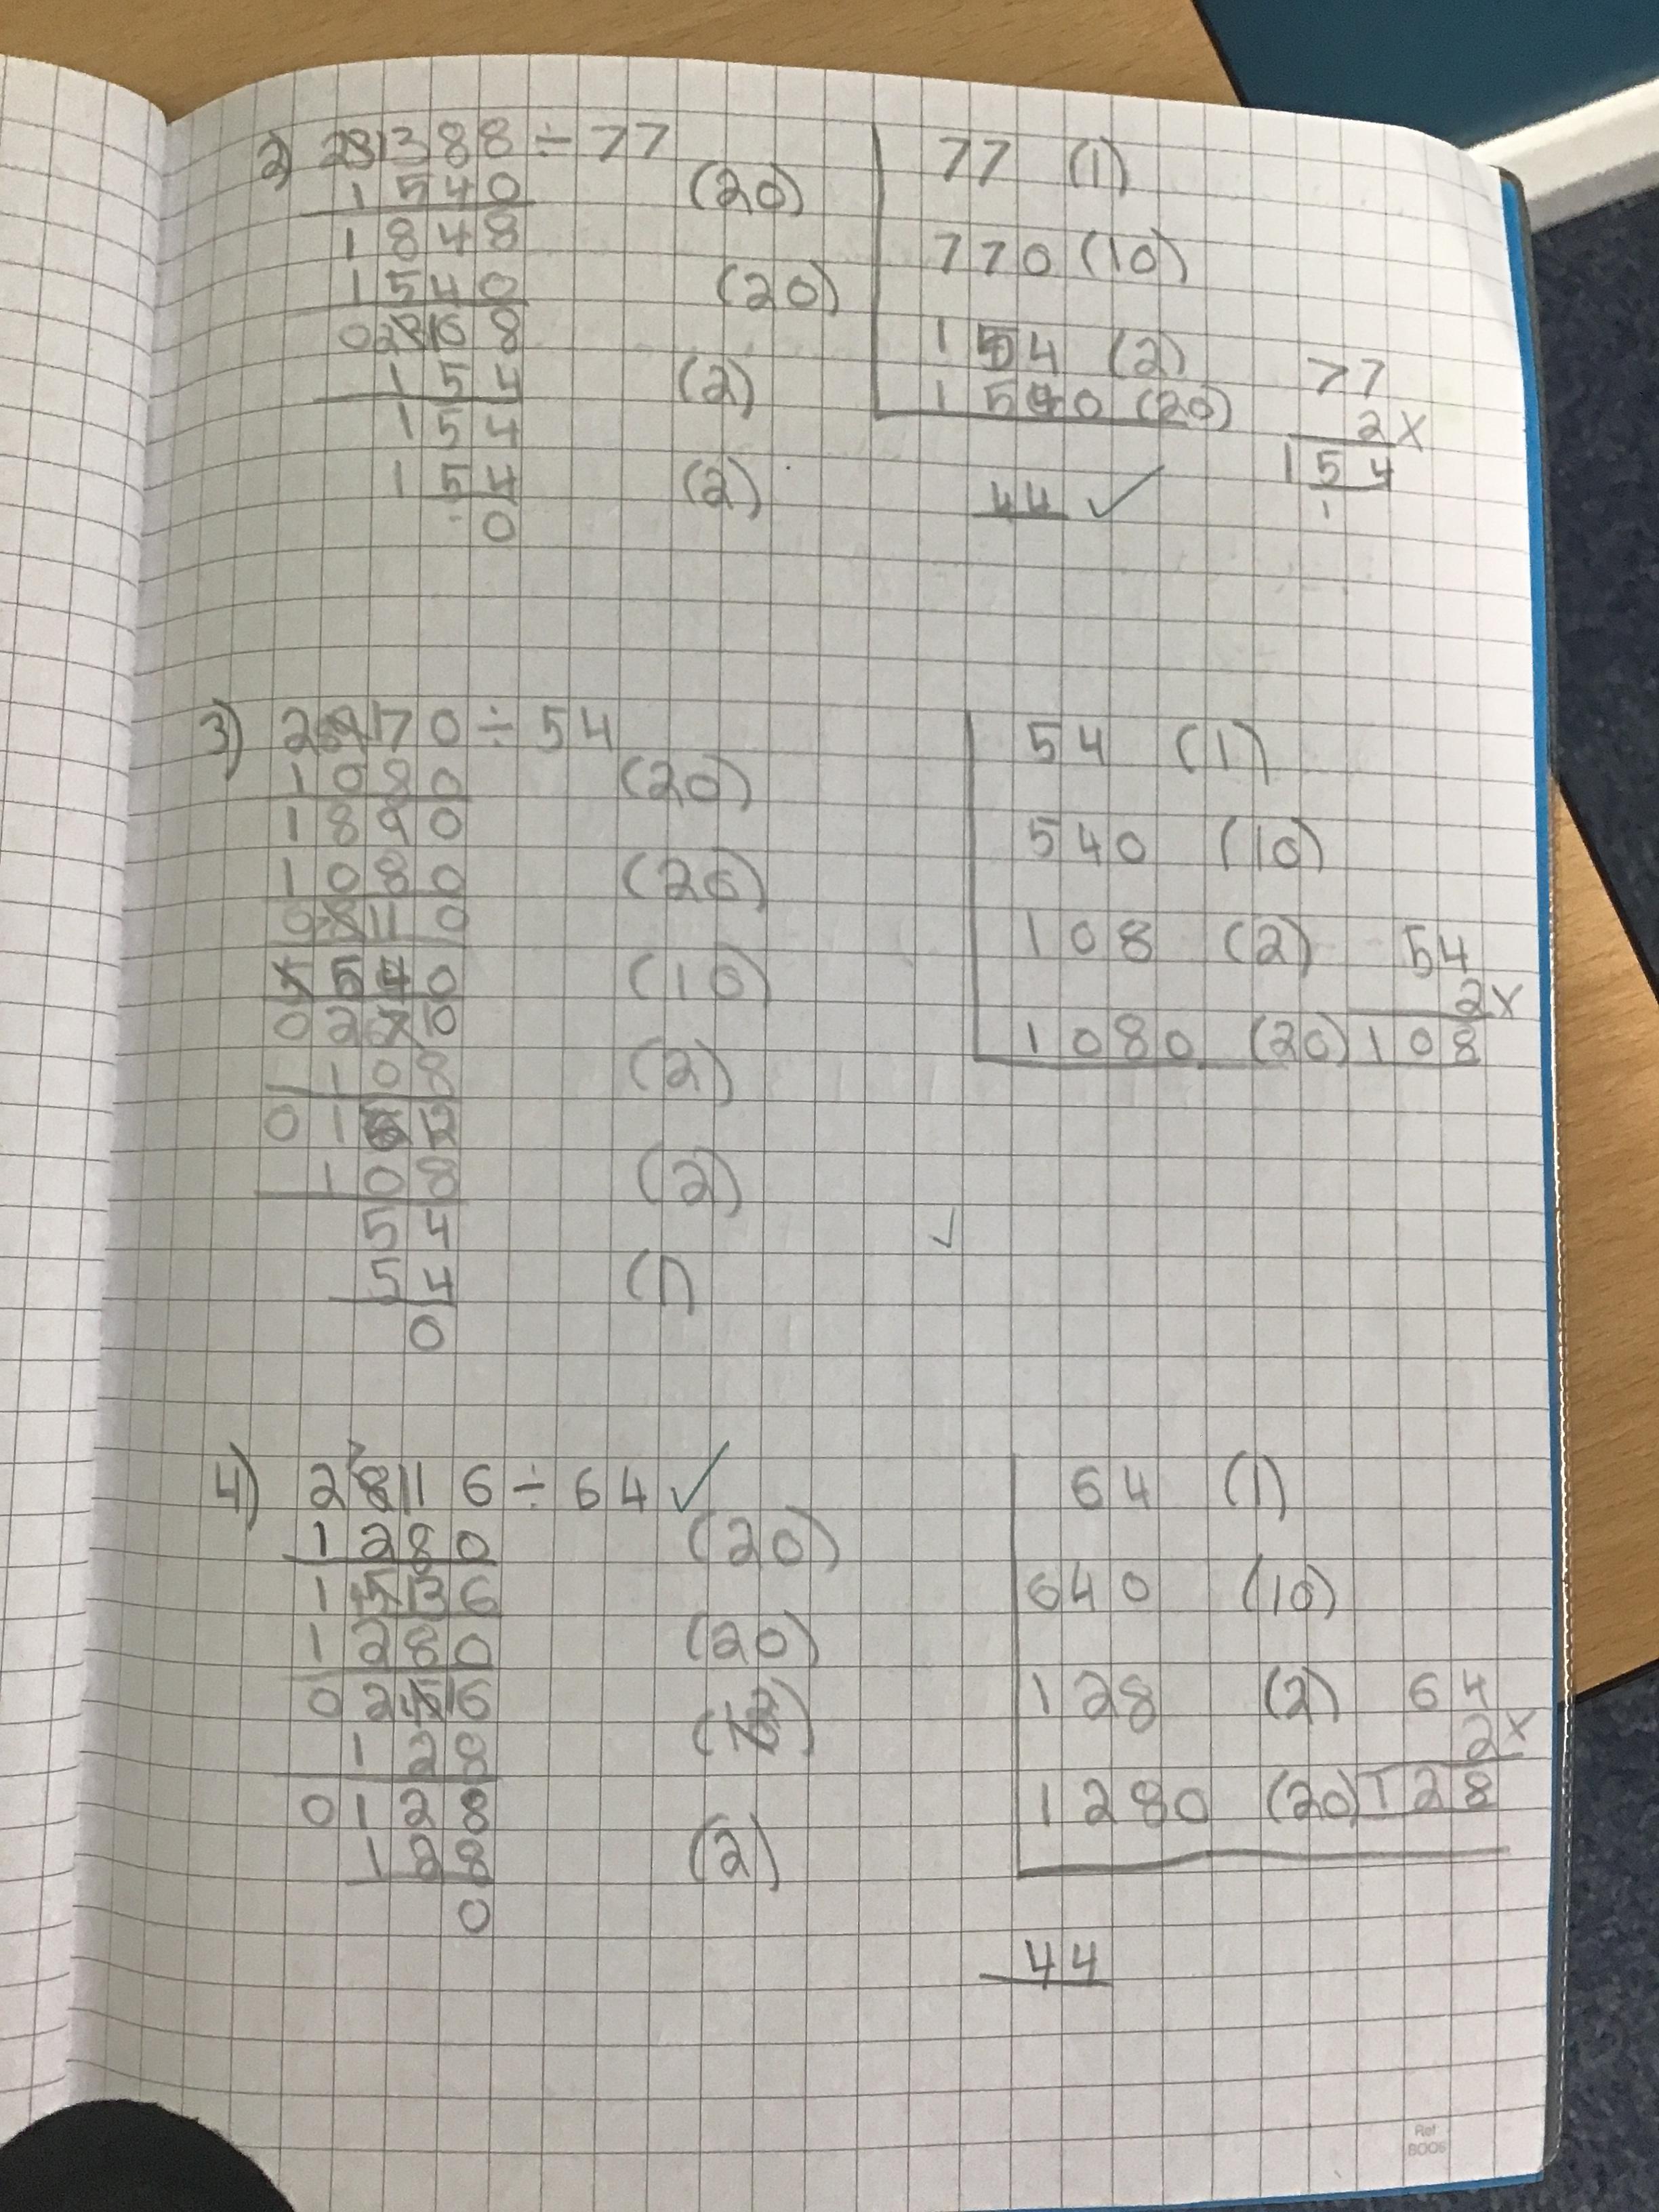 2) 3388 ÷ 77
1540 (20)
1848
1540 (20)
0308
154 (2)
154
154 (2)
0
77 (1)
770 (10)
154 (2)
1540 (20)
77
2x
154
1
44 ✓
3) 2970 ÷ 54
1080 (20)
1890
1080 (20)
0810
540 (10)
0270
108 (2)
0162
108 (2)
54
54 (1)
0
54 (1)
540 (10)
108 (2)
1080 (20)
54
2x
108
✓
4) 2816 ÷ 64 ✓
1280 (20)
1536
1280 (20)
0256
128
0128
128 (2)
0
64 (1)
640 (10)
128 (2)
1280 (20)
64
2x
128
44
Ref
BOO6